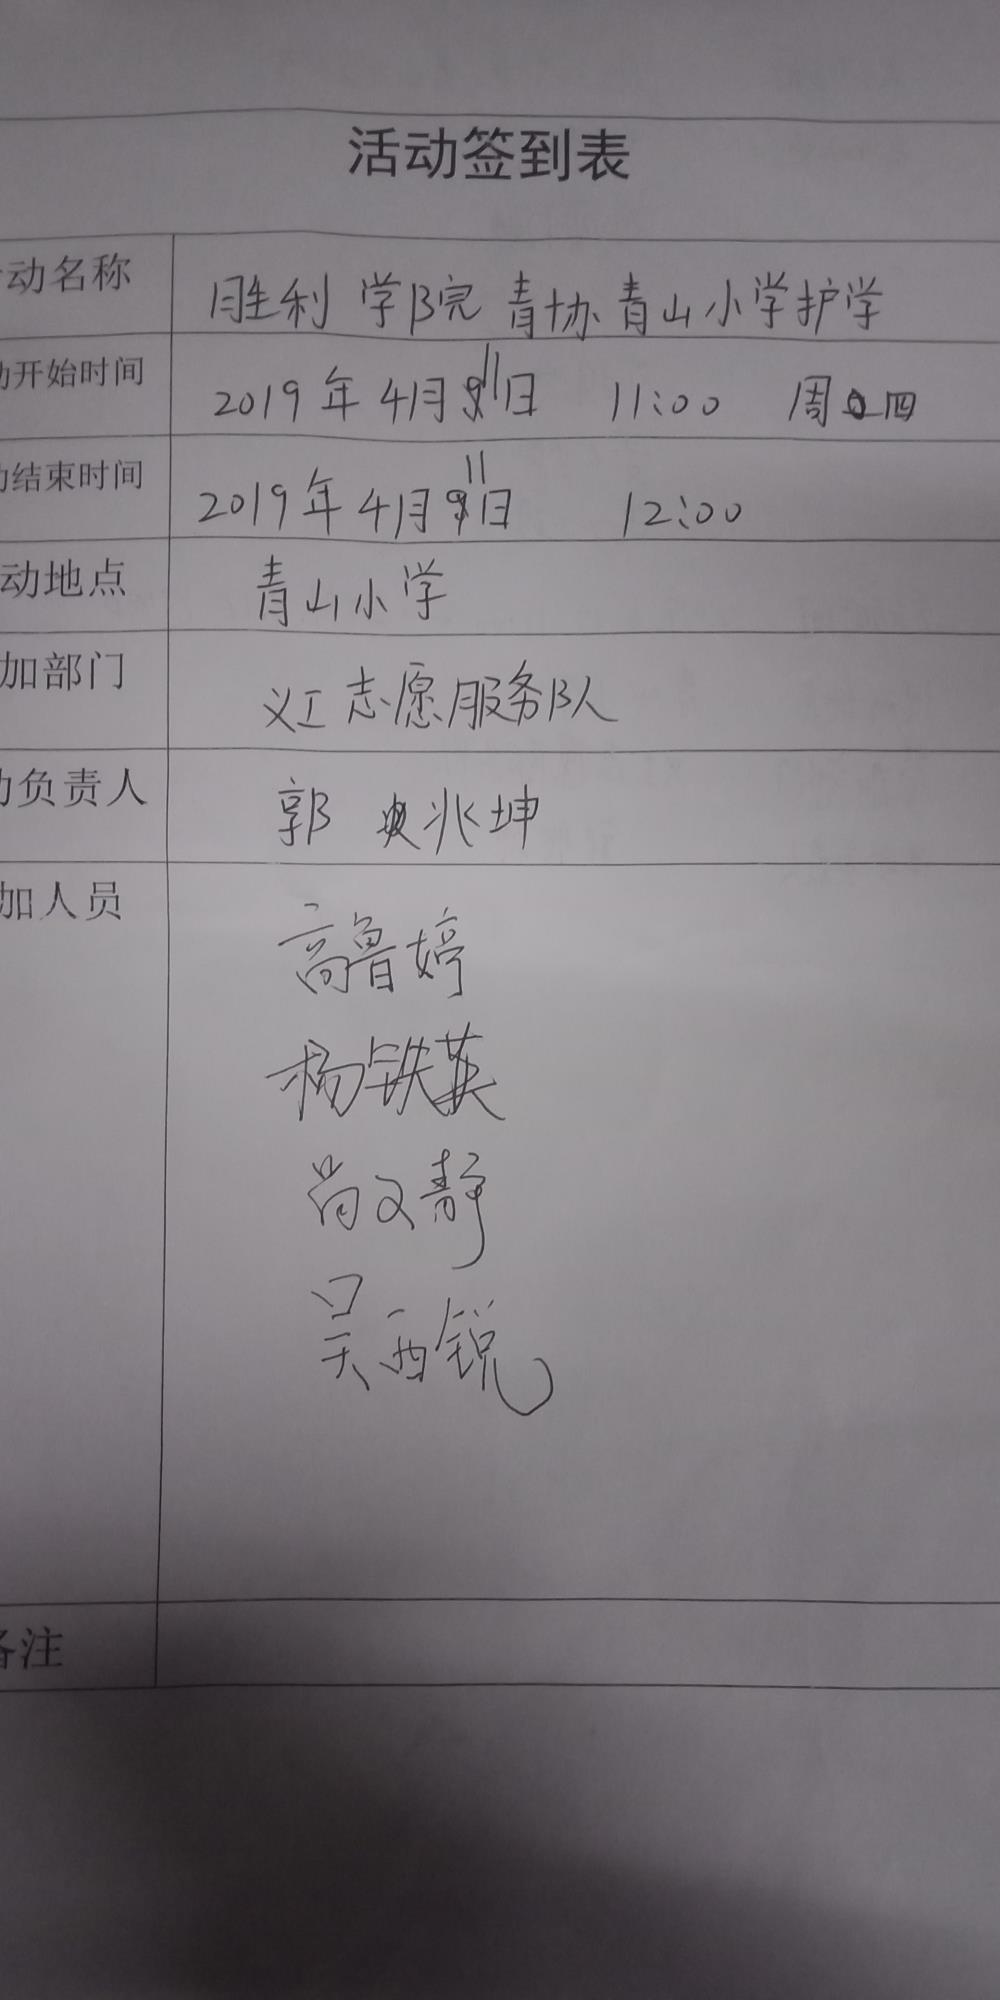 活动签到表
动名称 胜利学院青协青山小学护学
动开始时间 2019年4月11日 11:00 周四
动结束时间 2019年4月11日 12:00
动地点 青山小学
加部门 义工志愿服务队
动负责人 郭兆坤
加人员 高鲁婷
杨铁英
尚文静
吴西锐
备注